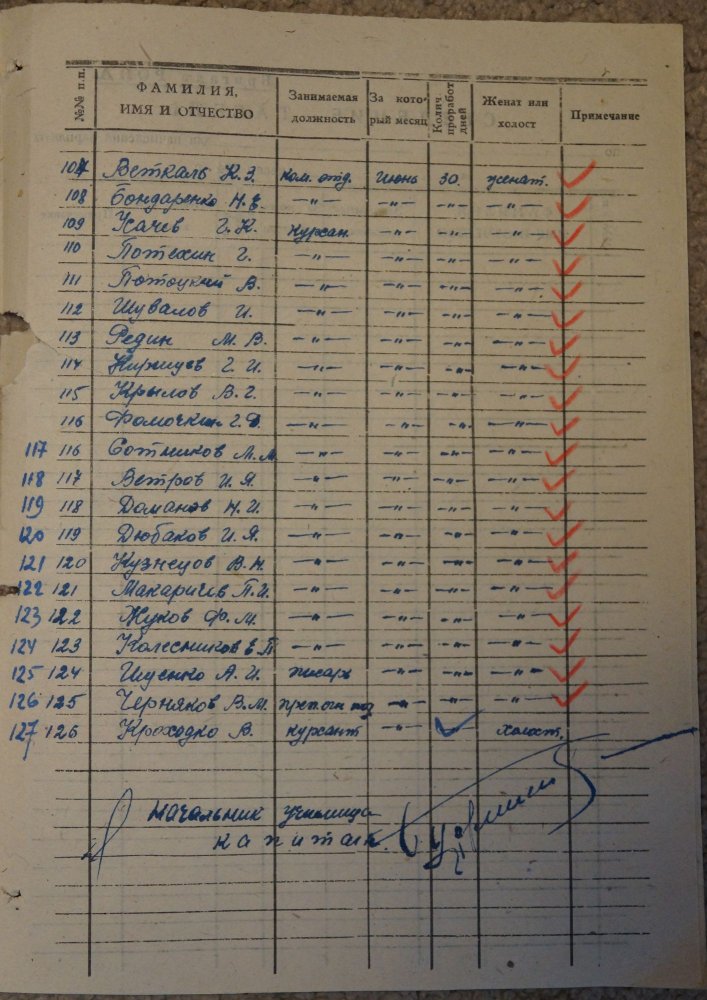 №№ п.п. ФАМИЛИЯ, ИМЯ И ОТЧЕСТВО Занимаемая должность За который месяц Колич. проработ дней Женат или холост Примечание
107 Веткаль К.З. ком. отд. Июнь 30. женат.
108 Бондаренко Н.Е. —„— —„— —„— —„—
109 Усачев Г.К. курсан. —„— —„— —„—
110 Потехин Г. —„— —„— —„— —„—
111 Потоцкий В. —„— —„— —„— —„—
112 Шувалов И. —„— —„— —„— —„—
113 Редин М.В. —„— —„— —„— —„—
114 Г.И. —„— —„— —„— —„—
115 Крылов В.Г. —„— —„— —„— —„—
116 Фомочкин Г.Ф. —„— —„— —„— —„—
117 116 Сотников М.М. —„— —„— —„— —„—
118 117 Ветров И.Я. —„— —„— —„— —„—
119 118 Доманов Н.И. —„— —„— —„— —„—
120 119 Дюбаков И.Я. —„— —„— —„— —„—
121 120 Кузнецов В.Н. —„— —„— —„— —„—
122 121 Макаричев П.И. —„— —„— —„— —„—
123 122 Жуков Ф.М. —„— —„— —„— —„—
124 123 Колесников Е.П. —„— —„— —„— —„—
125 124 Ищенко А.И. писарь —„— —„— —„—
126 125 Черняков В.М. —„— —„— —„—
127 126 Кроходко В. курсант —„— холост.
начальник училища
капитан